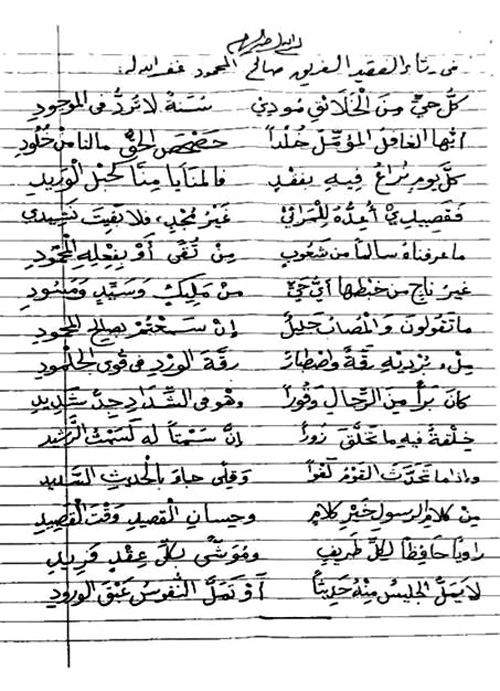 في رثاء الفقيد الفريق صالح المحمود غفر الله له
كلُّ حيٍّ مِنَ الخَلَائقِ مُودِي سُنَّةٌ لا تُرَدُّ في الموجودِ
أيُّها الغافلُ المُؤمِّلُ خُلْداً حَصْحَصَ الحقُّ مالنا منْ خُلُودِ
كلَّ يومٍ نُراعُ فيهِ بِفَقْدٍ فالمنَايا مِنَّا كَحَبْلِ الوَرِيدِ
فَقَصِيدِيْ أُعِدُّهُ لِلْمَراثيْ غَيْرُ مُجْدٍ، فلا بَقِيتَ نَشِيدي
ما عرفناهُ سالماً من شَعُوبٍ مِنْ تُقًى أَوْ بِفِعْلِهِ المحْمُودِ
غيرُ ناجٍ من خبْطِها أيُّ حَيٍّ منْ مَلِيكٍ وَسَيِّدٍ وَمَسُودِ
ما تقُولونَ وَالمُصابُ جَليلٌ إنْ سَمِعْتُمْ بِصالحِ المحمودِ
مِلءَ بُرْدَيْهِ رِقَّةٌ واصْطِبارٌ رقَّةَ الوَرْدِ في قُوى الجُلْمودِ
كانَ بَرّاً مِنَ الرِّجالِ وَقُوراً وهو في الشِّدادِ جِدُّ شَدِيدِ
خِلْقةٌ فيهِ ما تَخَلَّقَ زُوراً إنَّ سَمْتاً له كَسَمْتِ الرَّشيدِ
وإذا ما تَحَدَّثَ القَوْمُ لَغْواً بالحديثِ السَّديدِ
مِنْ كلامِ الرسولِ خَيْرِ كلامٍ وحِسانِ القَصيدِ وَقْتَ القَصِيدِ
راوياً حَافِظاً لِكلِّ طَريفٍ ومُوَشًّى بكلِّ عِقْدٍ فَرِيدِ
لا يَمَلُّ الجليسُ مِنْهُ حَدِيثاً أَوْ تَمَلَّ النُّفوسُ عَبْقَ الورودِ